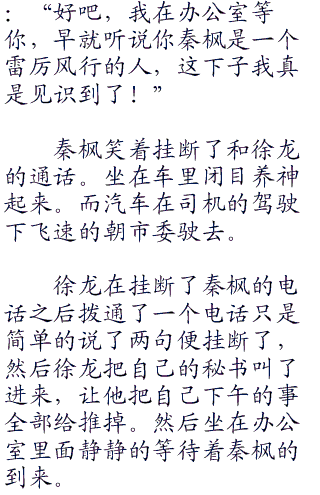 ：“好吧，我在办公室等
你，早就听说你秦枫是一个
雷厉风行的人，这下子我真
是见识到了！”
秦枫笑着挂断了和徐龙
的通话。坐在车里闭目养神
起来。而汽车在司机的驾驶
下飞速的朝市委驶去。
徐龙在挂断了秦枫的电
话之后拨通了一个电话只是
简单的说了两句便挂断了，
然后徐龙把自己的秘书叫了
进来，让他把自己下午的事
全部给推掉。然后坐在办公
室里面静静的等待着秦枫的
到来。